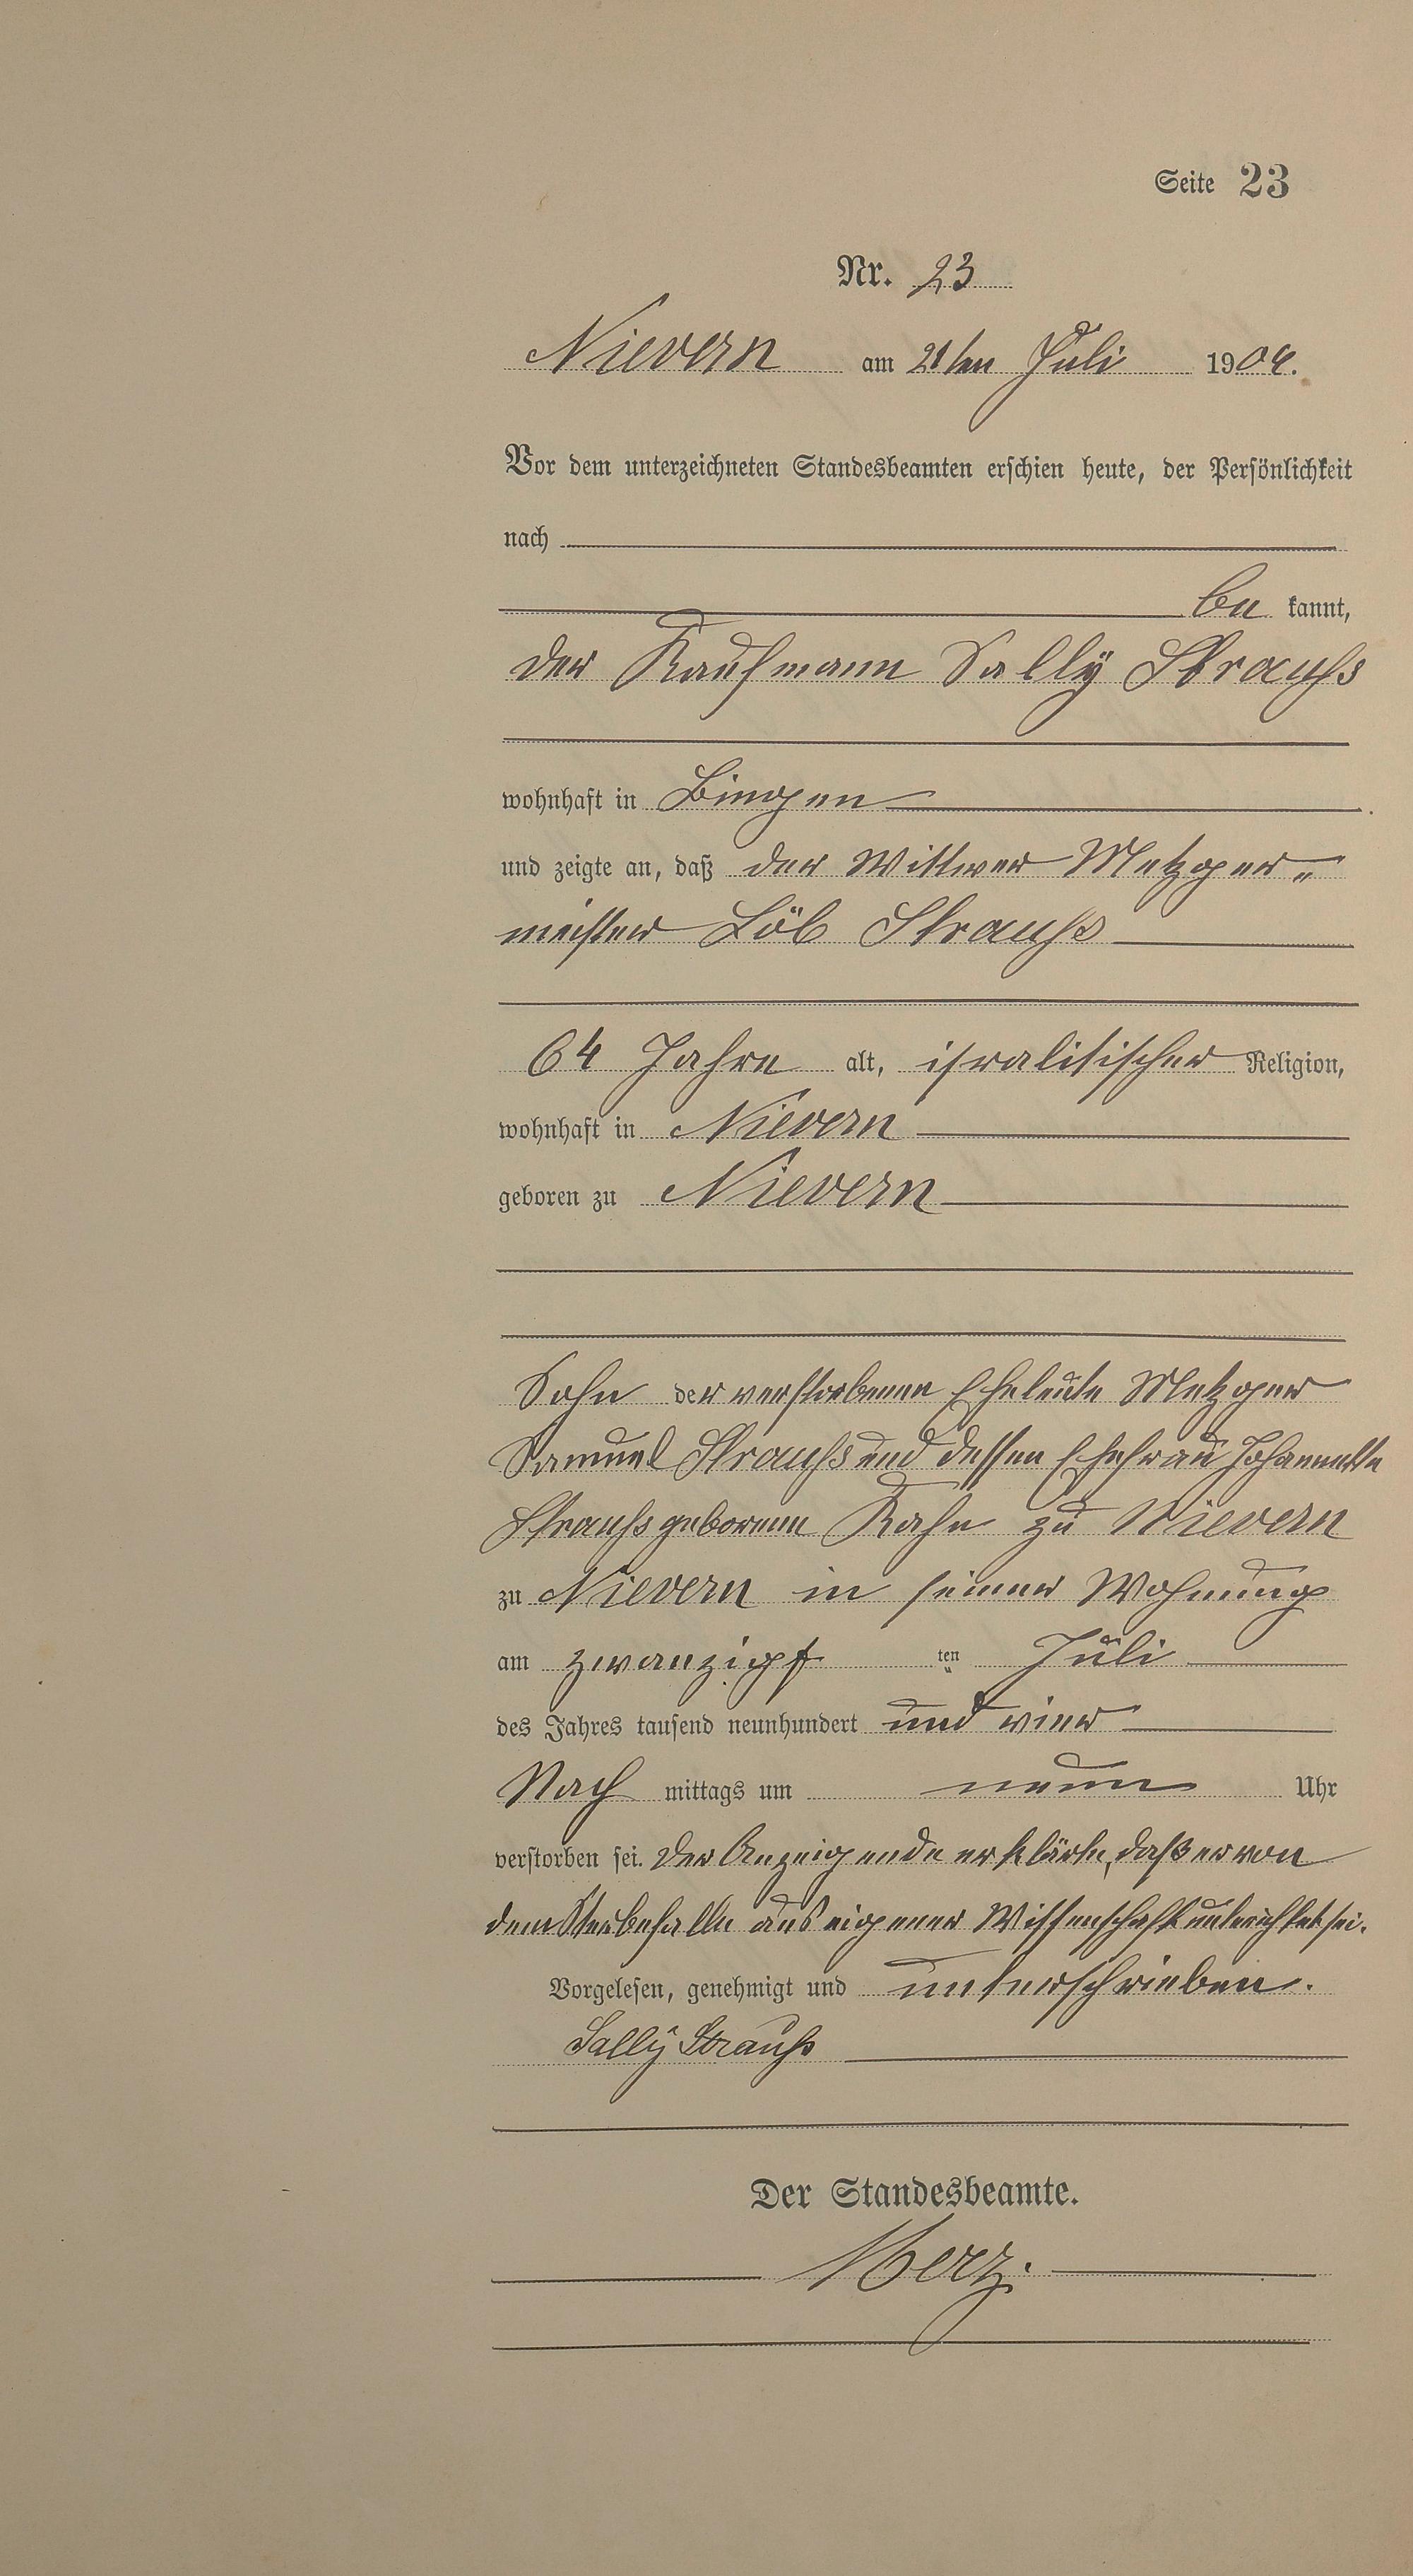 Seite 23
Nr. 23
Nievern am 21ten Juli 1904.
Vor dem unterzeichneten Standesbeamten erschien heute, der Persönlichkeit
nach
be kannt,
der Kaufmann Sally Strauß
wohnhaft in Bingen
und zeigte an, daß der Wittwer Metzger„
meister Löb Strauß
64 Jahre alt, isralitischer Religion,
wohnhaft in Nievern
geboren zu Nievern
Sohn der verstorbenen Eheleute Metzger
Samuel Strauß und dessen Ehefrau Johannette
Strauß geborene Kahn zu Nievern
zu Nievern in seiner Wohnung
am zwanzigs ten Juli
des Jahres tausend neunhundert und vier
Nach mittags um neun Uhr
verstorben sei. Der Anzeigende erklärte, daß er von
dem Sterbefalle aus eigener Wissenschaft unterichtet sei.
Vorgelesen, genehmigt und unterschrieben.
Sally Strauß
Der Standesbeamte.
Merz.